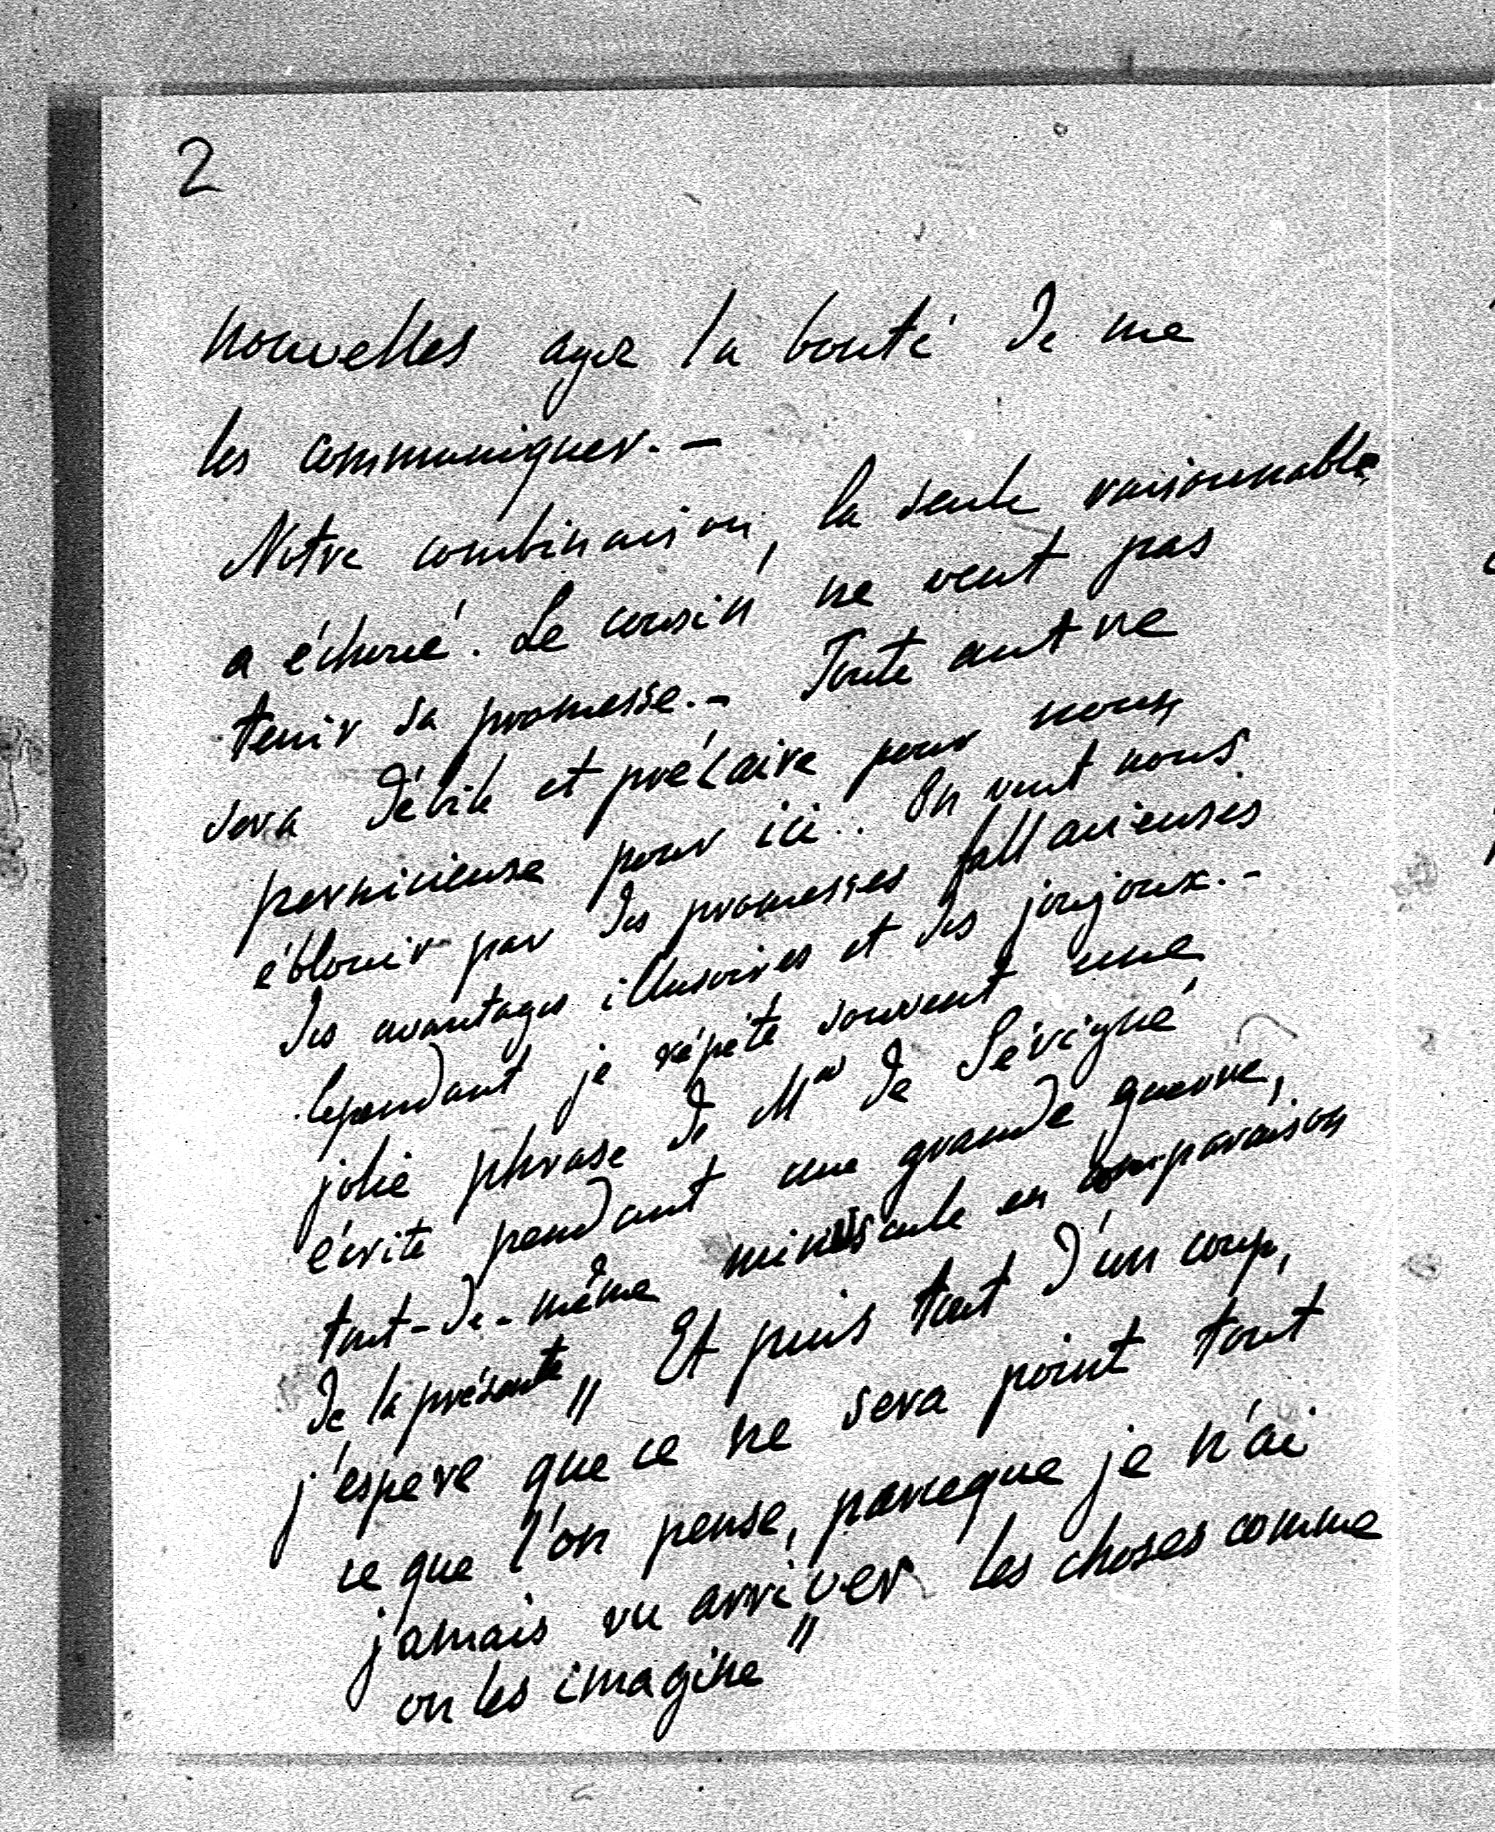 2
nouvelles ayez la bonté de me
les communiquer. –
Notre combinaison, la seule raisonnable
a échoué. Le cousin ne veut pas
tenir sa promesse. – Toute autre
sera débile et précaire pour nous
pernicieuse pour ici. On veut nous
éblouir par des promesses fallacieuses
des avantages illusoires et des joujoux. –
Cependant je répète souvent une
jolie phrase de Mme de Sévigné
écrite pendant une grande guerre,
tout-de-même minuscule en comparaison
de la présente „ Et puis tout d'un coup,
j'espère que ce ne sera point tout
ce que l'on pense, parceque je n'ai
jamais vu arriver les choses comme
on les imagine "